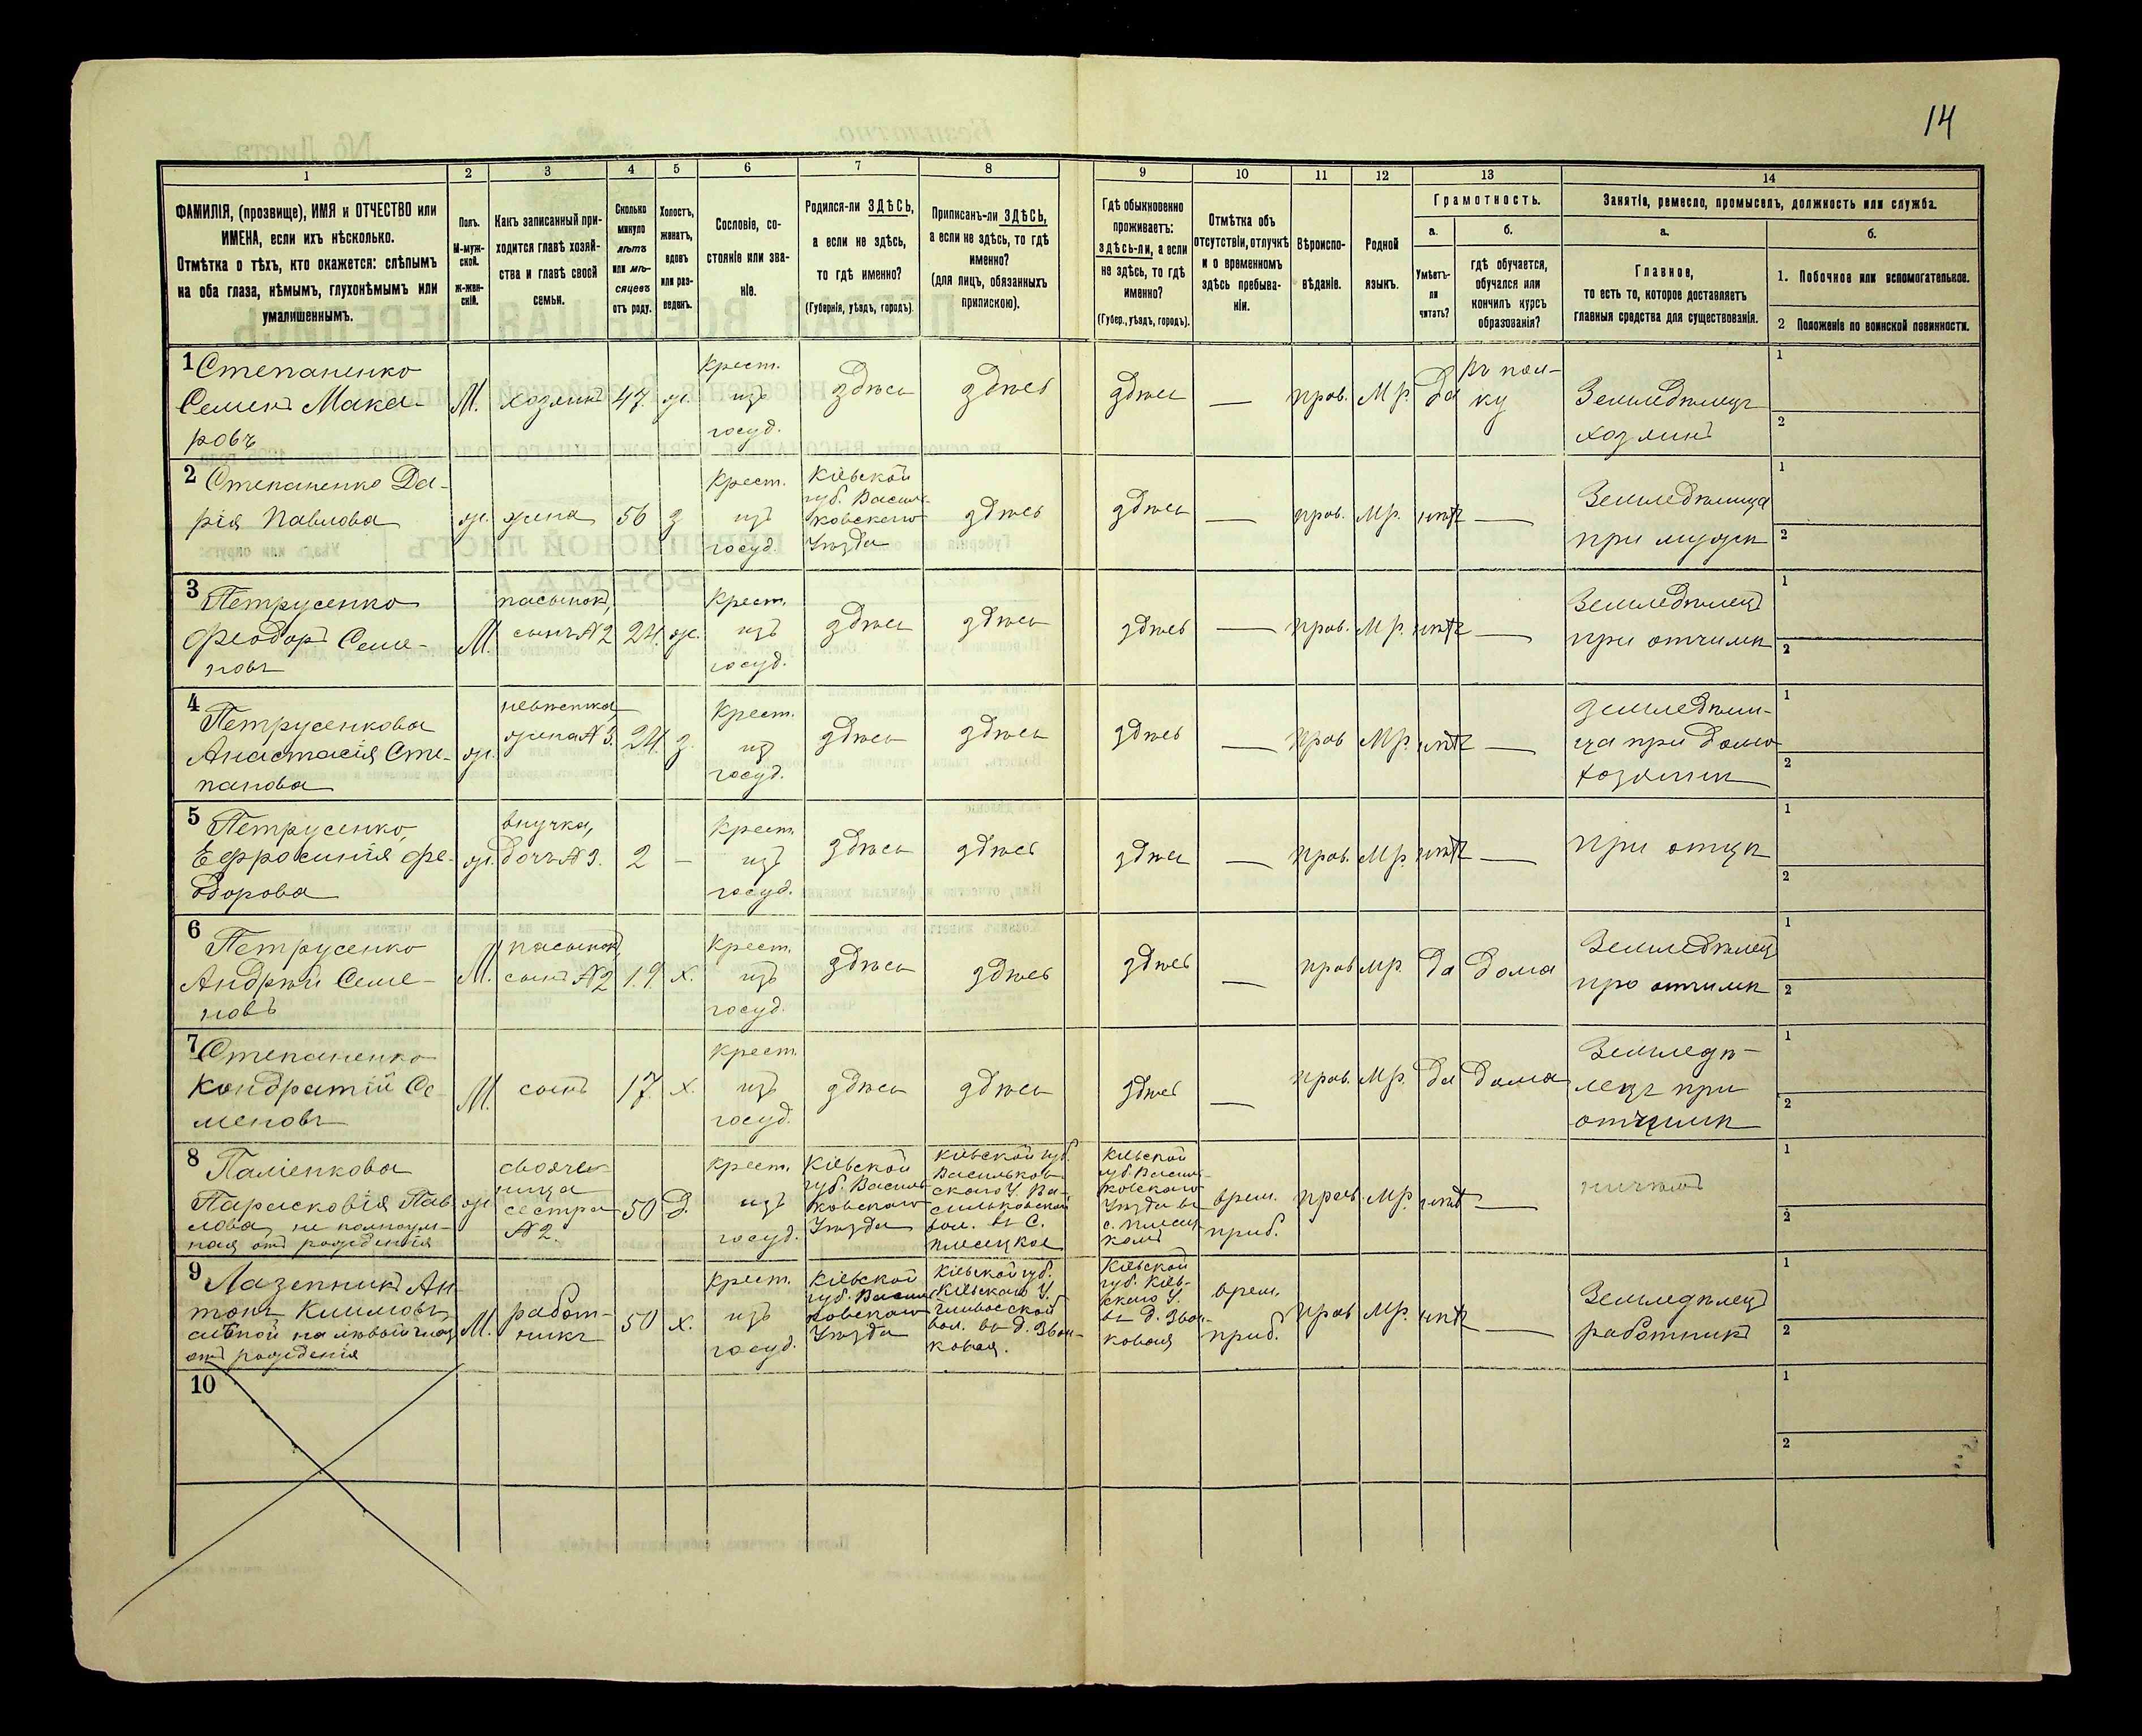 14
1 2 3 4 5 6 7 8 9 10 11 12 13 14
ФАМИЛІЯ, (прозвище), ИМЯ и ОТЧЕСТВО или
ИМЕНА, если ихъ нѣсколько.
Отмѣтка о тѣхъ, кто окажется: слѣпымъ
на оба глаза, нѣмымъ, глухонѣмымъ или
умалишеннымъ.
Полъ.
М-муж-
ской.
Ж-жен-
скій.
Какъ записанный при-
ходится главѣ хозяй-
ства и главѣ своей
семьи.
Сколько
минуло
лѣтъ
или мѣ-
сяцевъ
отъ роду.
Холостъ,
женатъ,
вдовъ
или раз-
веденъ.
Сословіе, со-
стояніе или зва-
ніе.
Родился-ли ЗДѢСЬ,
а если не здѣсь,
то гдѣ именно?
(Губернія, уѣздъ, городъ).
Приписанъ-ли ЗДѢСЬ,
а если не здѣсь, то гдѣ
именно?
(для лицъ, обязанныхъ
припискою).
Гдѣ обыкновенно
проживаетъ:
здѣсь-ли, а если
не здѣсь, то гдѣ
именно?
(Губер., уѣздъ, городъ).
Отмѣтка объ
отсутствіи, отлучкѣ
и о временномъ
здѣсь пребыва-
ніи.
Вѣроиспо-
вѣданіе.
Родной
языкъ.
Грамотность.
а.
Умѣетъ-
ли
читать?
б.
гдѣ обучается,
обучался или
кончилъ курсъ
образованія?
Занятіе, ремесло, промыселъ, должность или служба.
а.
Главное,
то есть то, которое доставляетъ
главныя средства для существованія.
б.
1. Побочное или вспомогательное.
2 Положеніе по воинской повинности.
1 Степаненко
Семенъ Мака-
ровъ
М.
хозяинъ
47.
ж.
крест.
изъ
госуд.
здѣсь
здѣсь
здѣсь
—
прав.
Мр.
да
въ пол-
ку
Земледѣлецъ
хозяинъ
1
2
2 Степаненко Да-
рія Павлова
ж.
жена
56
з
крест.
изъ
госуд.
Кіевской
губ. Василь-
ковскаго
Уѣзда
здѣсь
здѣсь
—
прав.
Мр.
нѣтъ
—
Земледѣлица
при мужѣ
1
2
3 Петрусенко
Феодоръ Семе-
новъ
М.
пасынокъ,
сынъ №2
24.
ж.
крест.
изъ
госуд.
здѣсь
здѣсь
здѣсь
—
прав.
Мр.
нѣтъ
—
Земледѣлецъ
при отчимѣ
1
2
4 Петрусенкова
Анастасія Сте-
панова
ж.
невѣстка,
жена №3.
24.
з.
крест.
изъ
госуд.
здѣсь
здѣсь
здѣсь
—
прав
Мр.
нѣтъ
—
Земледѣли-
ца при домо
хозяинѣ
1
2
5 Петрусенко,
Ефросинія Фе-
дорова
ж.
внучка,
дочь №3.
2
—
крест.
изъ
госуд.
здѣсь
здѣсь
здѣсь
—
прав.
Мр.
нѣтъ
—
при отцѣ
1
2
6 Петрусенко
Андрѣй Семе-
новъ
М.
пасынокъ,
сынъ №2
19.
х.
крест.
изъ
госуд.
здѣсь
здѣсь
здѣсь
—
прав
мр.
да
дома
Земледѣлецъ
при отчимѣ
1
2
7 Степаненко
Кондратій Се-
меновъ
М.
сынъ
17.
х.
крест.
изъ
госуд.
здѣсь
здѣсь
здѣсь
—
прав.
Мр.
да
дома
Земледѣ-
лецъ при
1
2
8 Паліенкова
Парасковія Пав
лова,
отъ рожденія
ж.
свояче-
ница
сестра
№2.
50
Д.
крест.
изъ
госуд.
Кіевской
губ. Василь-
ковскаго
Уѣзда
Кіевской губ.
Васильков-
скаго У. Ва-
сильковской
вол. въ С.
Плесецкое
Кіевской
губ. Василь-
ковскаго
Уѣзда въ
с. Плесец-
комъ
врем.
приб.
прав.
Мр.
нѣтъ
—
1
2
9 Лазепникъ Ан-
тонъ Климовъ,
слѣпой на лѣвый глаз
отъ рожденія
М.
работ-
никъ
50
х.
крест.
изъ
госуд.
Кіевской
губ. Василь
ковскаго
Уѣзда
Кіевской губ.
Кіевскаго У.
Глевасской
вол. въ д. Звон-
ковая.
Кіевской
губ. Кіев-
скаго У.
въ д. Звон-
ковая
врем.
приб.
прав
Мр.
нѣтъ
—
Земледѣлецъ
работникъ
1
2
10
1
2